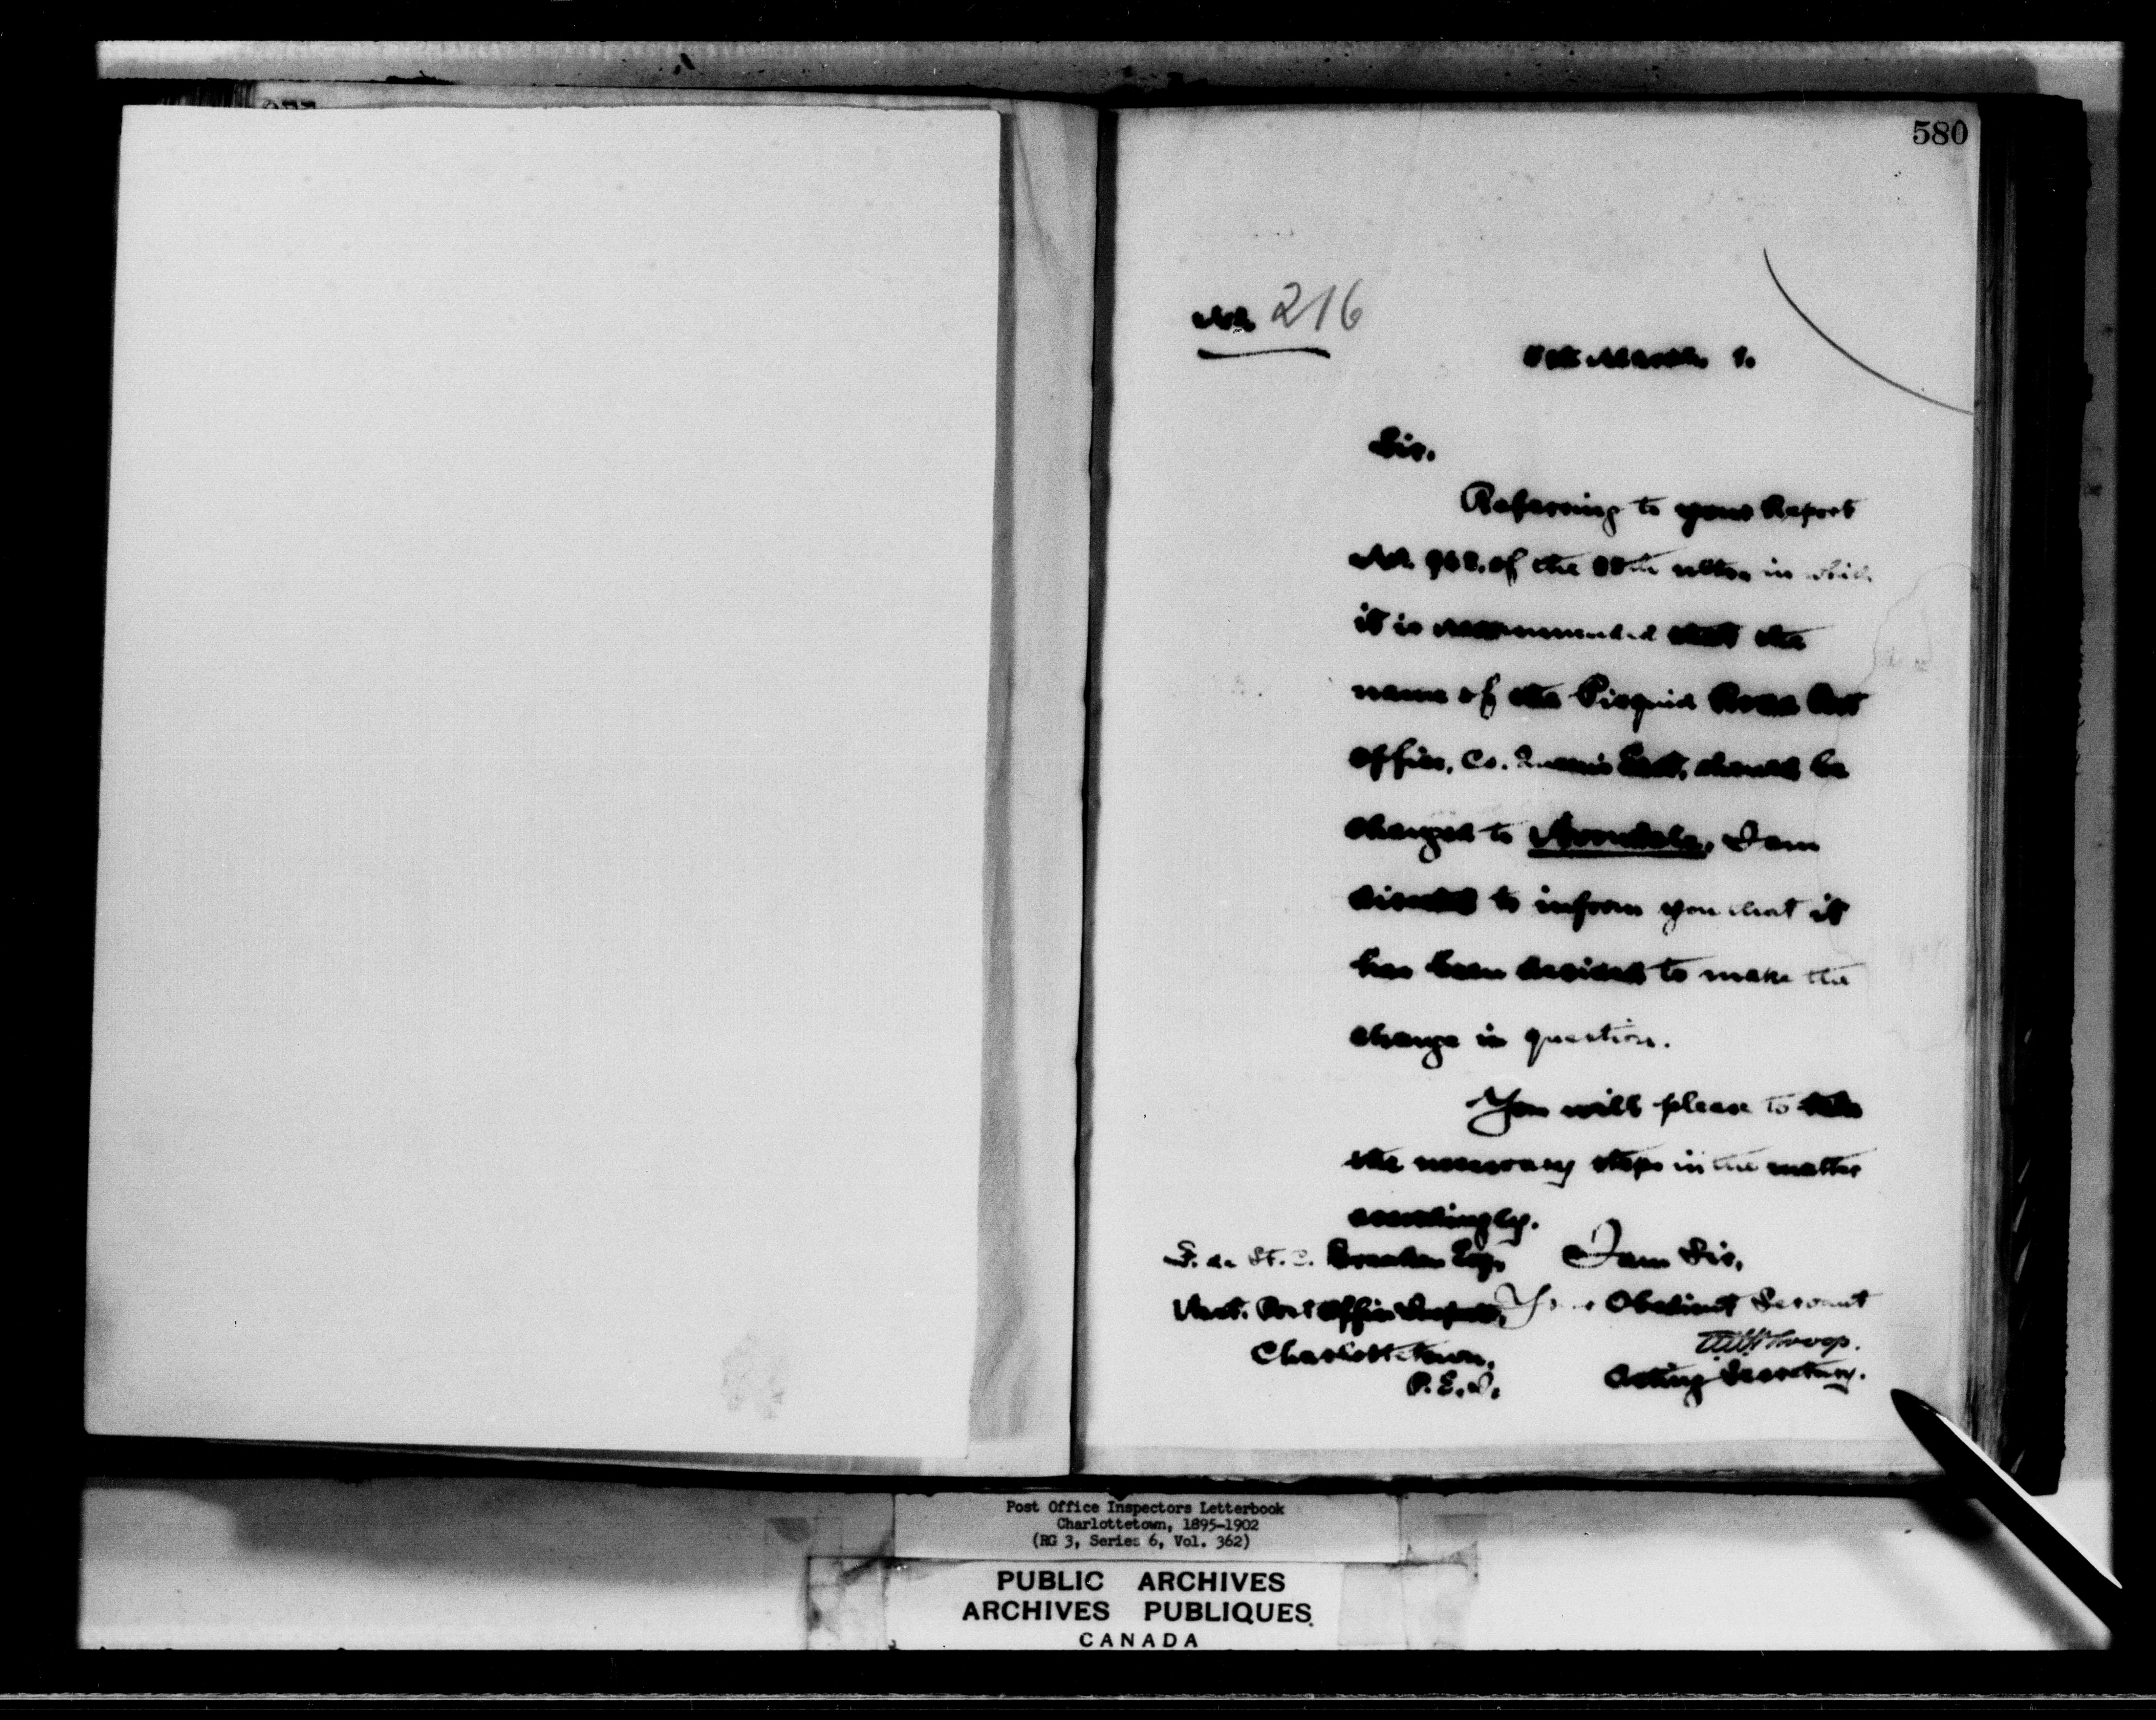 580
No. 216
March 1.
Sir.
Referring to your Report
No. of the ulto. in which
it is recommended that the
name of the Pisquid Road Post
Office, Co. Queen's East, should be
changed to Avondale, I am
directed to inform you that it
has been decided to make the
change in question.
You will please to take
the necessary steps in the matter
accordingly.
I am Sir,
Your Obedient Servant
Acting Secretary.
F. de St. C. Brecken Esq,
Asst. Post Office Inspector,
Charlottetown,
P.E.I.
Post Office Inspectors Letterbook
Charlottetown, 1895-1902
(RG 3, Series 6, Vol. 362)
PUBLIC ARCHIVES
ARCHIVES PUBLIQUES
CANADA